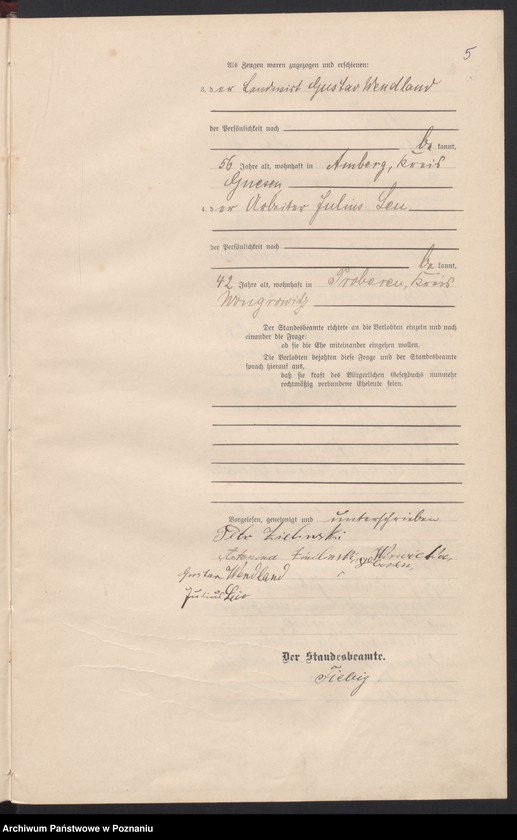 5
Als Zeugen waren zugezogen und erschienen:
a. der Landwirt Gustav Wendland
der Persönlichkeit nach
be kannt,
56 Jahre alt, wohnhaft in Amberg, Kreis
Gnesen
4. der Arbeiter Julius Leu
der Persönlichkeit nach
be kannt,
42 Jahre alt, wohnhaft in Kreis
Wongrowitz
Der Standesbeamte richtete an die Verlobten einzeln und nach
einander die Frage:
ob sie die Ehe miteinander eingehen wollen.
Die Verlobten bejahten diese Frage und der Standesbeamte
sprach hierauf aus,
daß sie kraft des Bürgerlichen Gesetzbuchs nunmehr
rechtmäßig verbundene Eheleute seien.
Vorgelesen, genehmigt und unterschrieben
Zielinski
Antonina Zielinski geborene
Gustav Wendland
Julius
Der Standesbeamte.
Fiebig
Archiwum Państwowe w Poznaniu